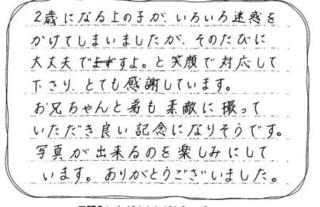 2歳になる上の子が、いろいろ迷惑を
かけてしまいましたが、そのたびに
大丈夫ですよ。と笑顔で対応して
下さり、とても感謝しています。
お兄ちゃんと弟も素敵に撮って
いただき良い記念になりそうです。
写真が出来るのを楽しみにして
います。ありがとうございました。